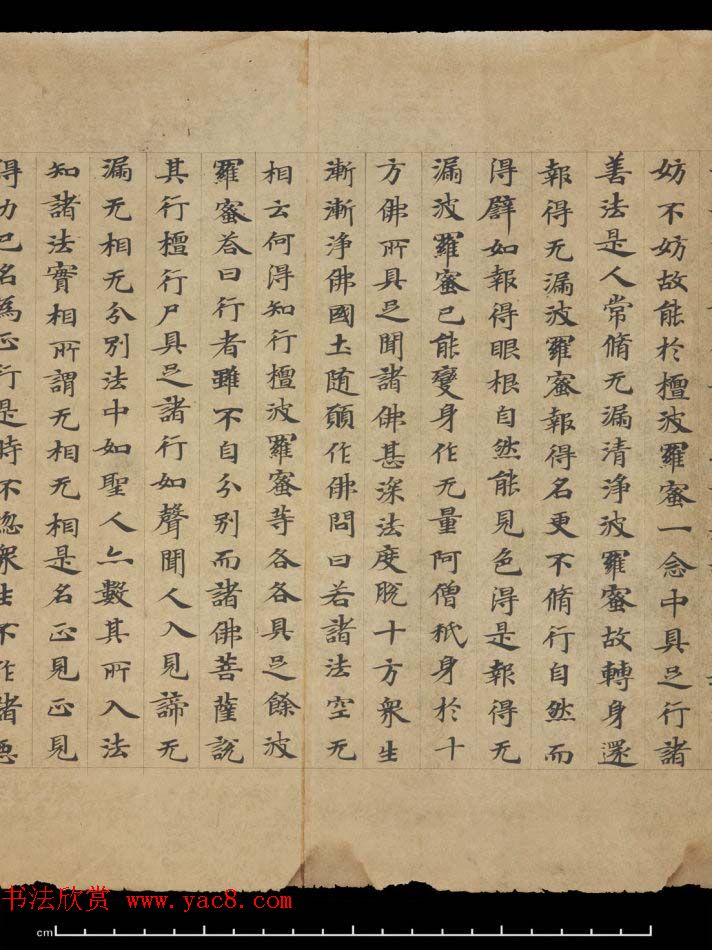 妨不妨故能於檀波羅蜜一念中具足行諸
善法是人常脩无漏清淨波羅蜜故轉身還
報得无漏波羅蜜報得名更不脩行自然而
得譬如報得眼根自然能見色得是報得无
漏波羅蜜已能變身作无量阿僧祇身於十
方佛所具足聞諸佛甚深法度脫十方衆生
漸漸淨佛國土随願作佛問曰若諸法空无
相云何得知行檀波羅蜜等各各具足餘波
羅蜜荅曰行者雖不自分別而諸佛菩薩說
其行檀行尸具足諸行如聲聞人入見諦无
漏无相无分別法中如聖人亦數其所入法
知諸法實相所謂无相无相是名正見正見
得力已名為正行是時不惱衆生不作諸惡
书法欣赏 www.yac8.com
cm